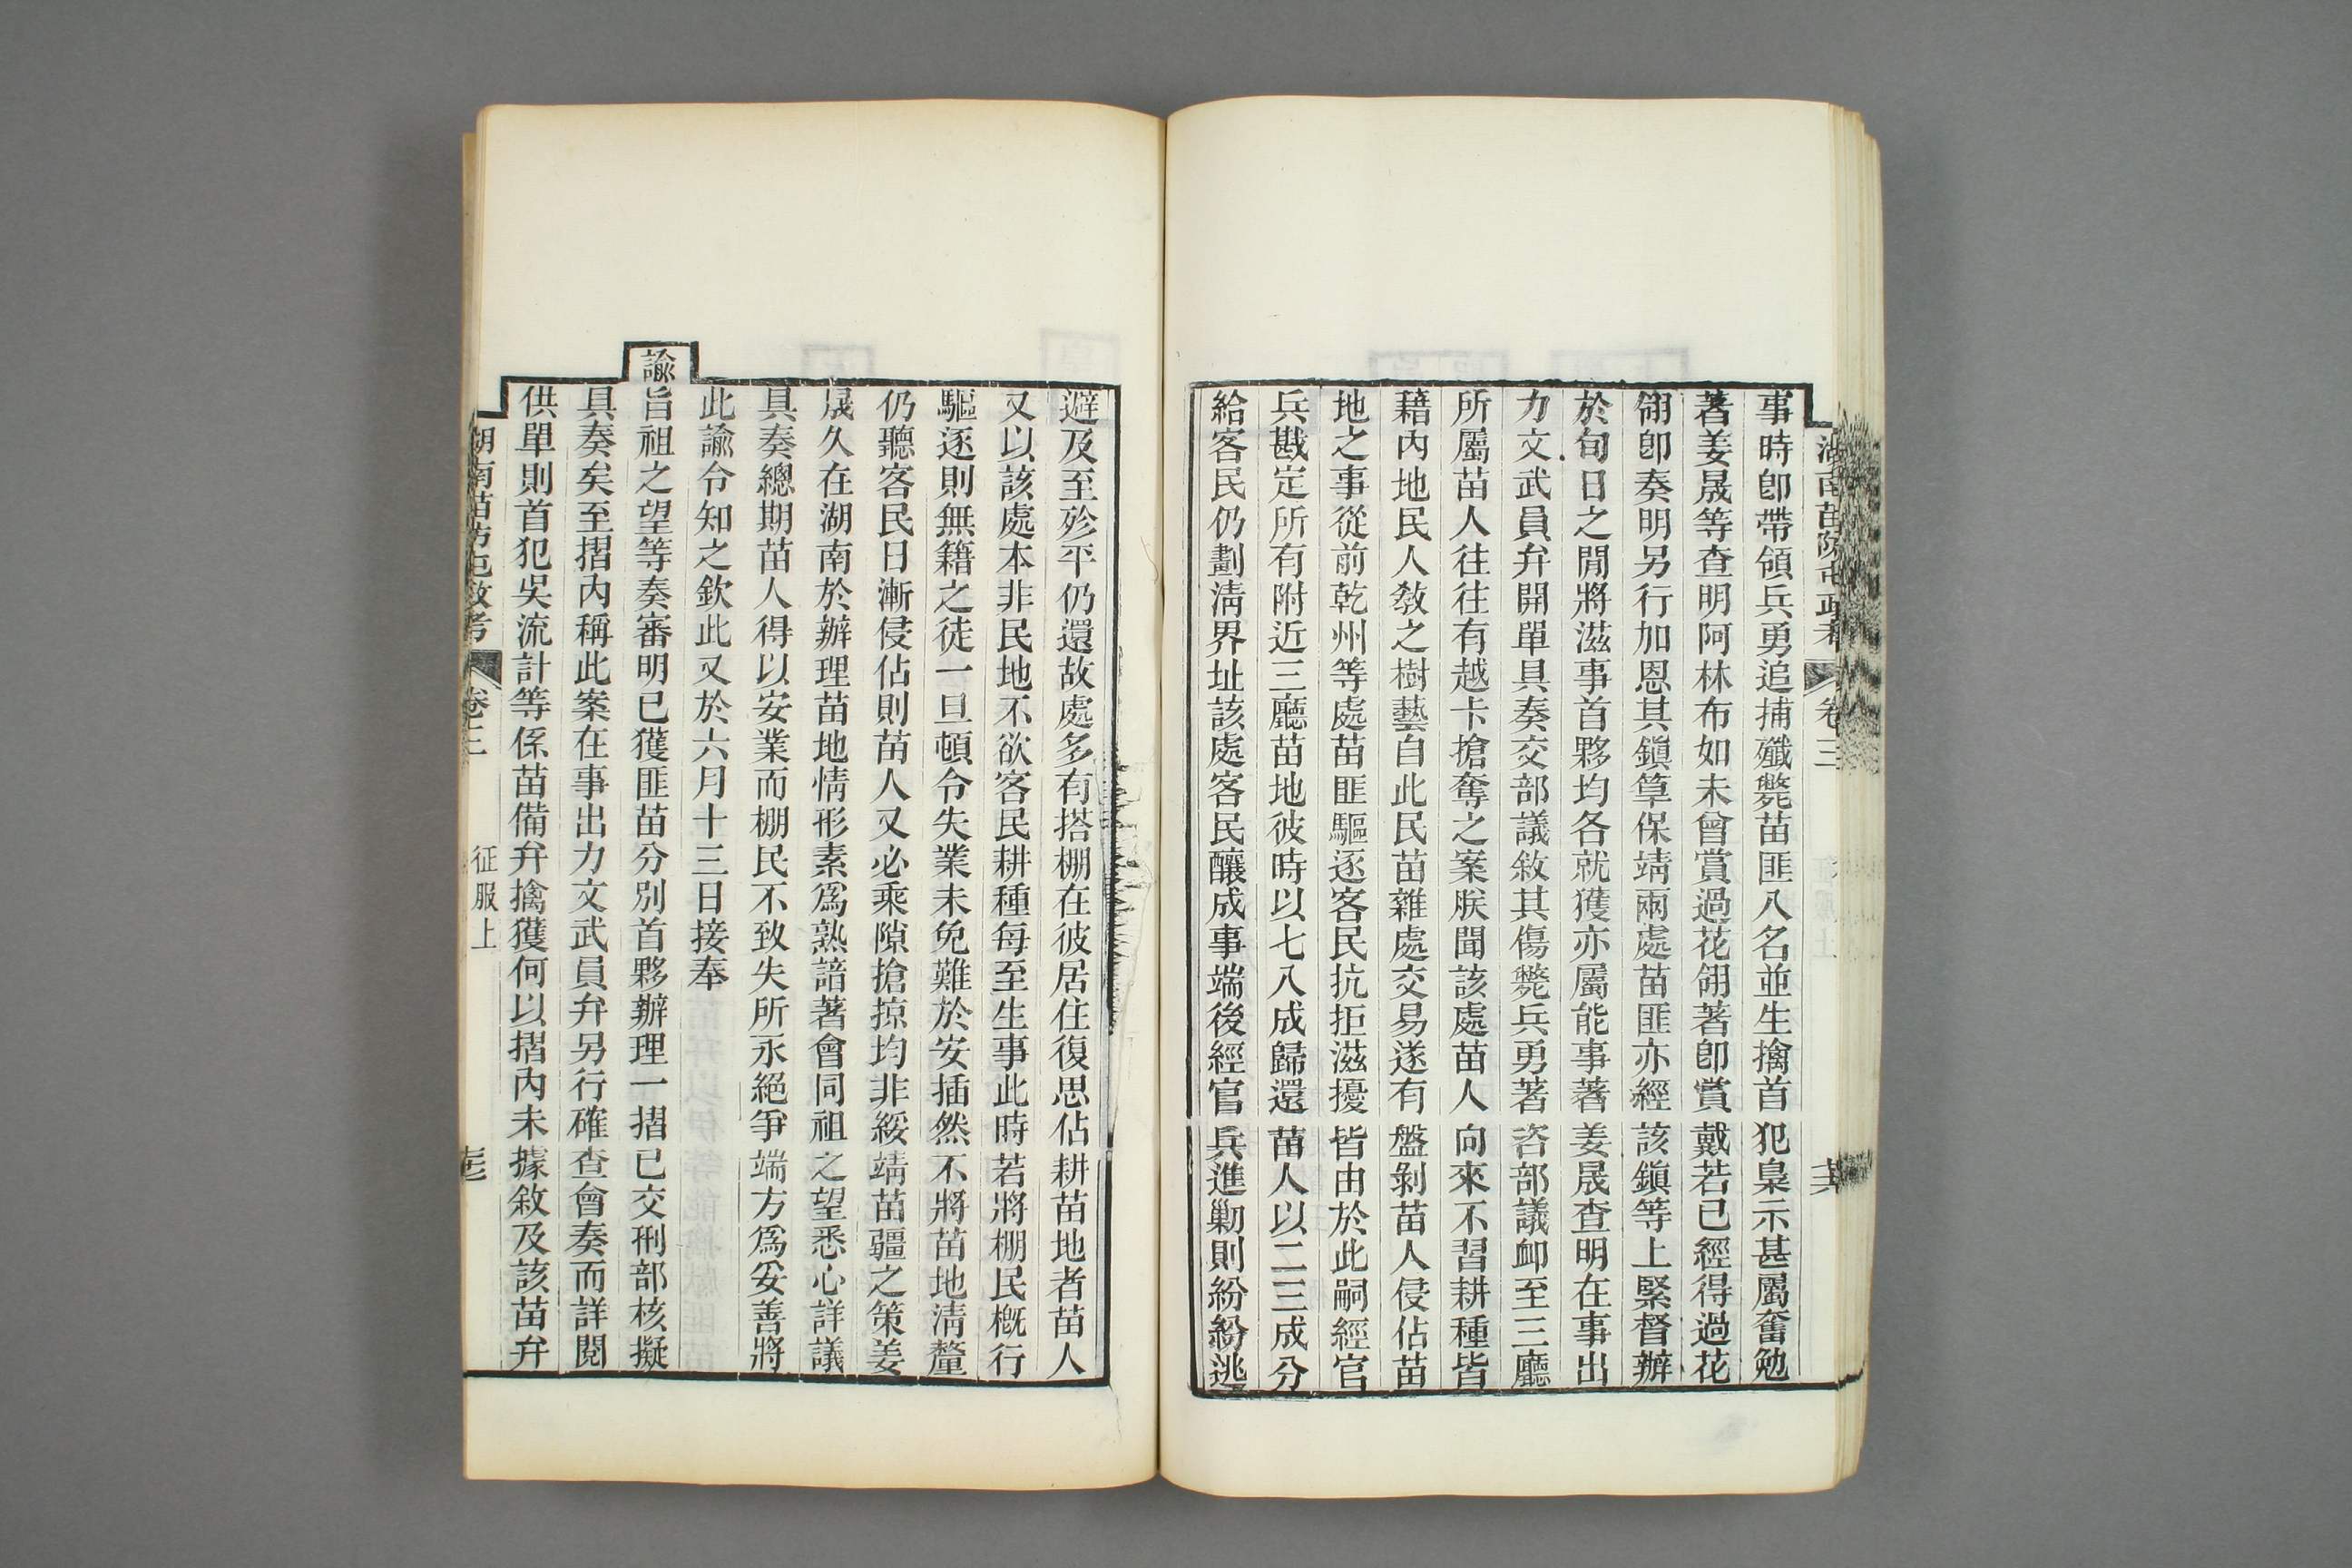 湖南苗防屯政考 卷三
事時卽帶領兵勇追捕殲斃苗匪八名並生擒首犯梟示甚屬奮勉
著姜晟等查明阿林布如未曾賞過花翎著卽賞戴若已經得過花
翎卽奏明另行加恩其鎭筸保靖兩處苗匪亦經該鎭等上緊督辦
於旬日之閒將滋事首夥均各就獲亦屬能事著姜晟查明在事出
力文武員弁開單具奏交部議敘其傷斃兵勇著咨部議卹至三廳
所屬苗人往往有越卡搶奪之案朕聞該處苗人向來不習耕種皆
藉內地民人敎之樹藝自此民苗雜處交易遂有盤剝苗人侵佔苗
地之事從前乾州等處苗匪驅逐客民抗拒滋擾皆由於此嗣經官
兵戡定所有附近三廳苗地彼時以七八成歸還苗人以二三成分
給客民仍劃淸界址該處客民釀成事端後經官兵進勦則紛紛逃
避及至殄平仍還故處多有搭棚在彼居住復思佔耕苗地者苗人
又以該處本非民地不欲客民耕種每至生事此時若將棚民槪行
驅逐則無籍之徒一旦頓令失業未免難於安插然不將苗地淸釐
仍聽客民日漸侵佔則苗人又必乘隙搶掠均非綏靖苗疆之策姜
晟久在湖南於辦理苗地情形素爲熟諳著會同祖之望悉心詳議
具奏總期苗人得以安業而棚民不致失所永絕爭端方爲妥善將
此諭令知之欽此又於六月十三日接奉
諭旨祖之望等奏審明已獲匪苗分別首夥辦理一摺已交刑部核擬
具奏矣至摺內稱此案在事出力文武員弁另行確查會奏而詳閱
供單則首犯吳流計等係苗備弁擒獲何以摺內未據敘及該苗弁
湖南苗防屯政考 卷三 征服上